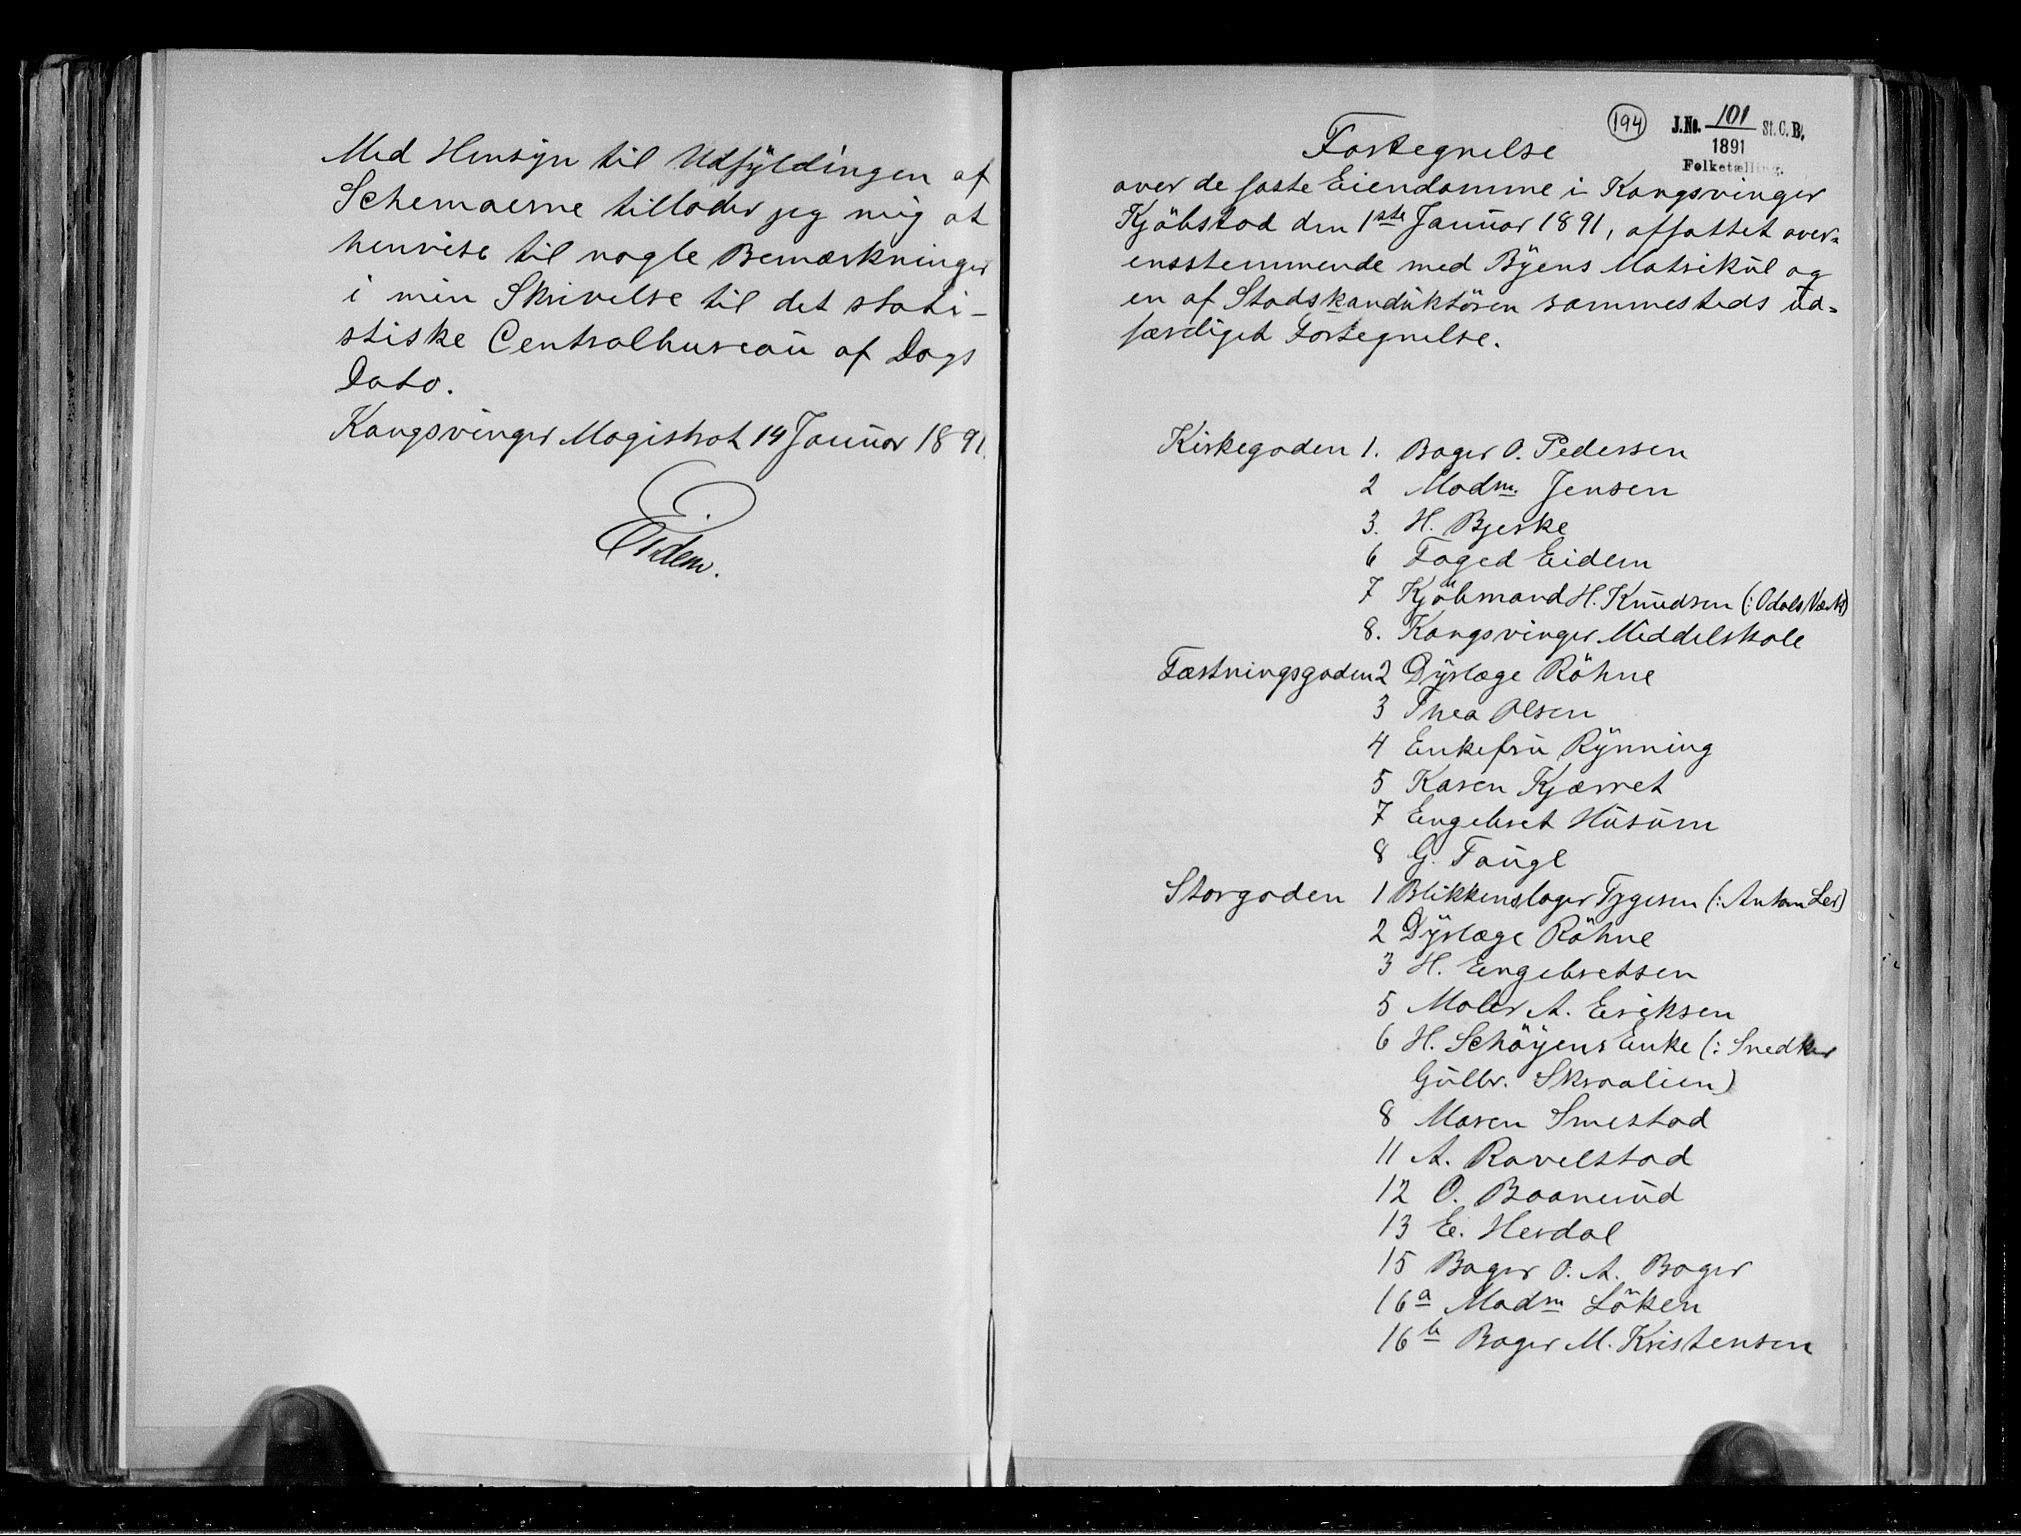 Med Hensyn til Udfyldingen af
Schemaerne tillader jeg mig at
henvise til nogle Bemærkninger
i min Skrivelse til det stati-
stiske Centralbureau af Dags
Dato.
Kongsvinger Magistrat 14 Januar 1891.
Eidem.
194
J.No. 101 St. C. B.
1891
Folketælling.
Fortegnelse
over de faste Eiendomme i Kongsvinger
Kjöbstad den 1ste Januar 1891, affattet over-
ensstemmende med Byens Matrikul og
en af Stadskonduktören sammesteds ud-
færdiget Fortegnelse.
Kirkegaden 1. Bager O. Pedersen
2 Madm. Jensen
3. H. Bjerke
6 Foged Eidem
7 Kjöbmand H. Knudsen (: Odals Værk)
8. Kongsvinger Middelskole
Fæstningsgaden 2 Dyrlæge Röhne
3 Thea Olsen
4 Enkefru Rynning
5 Karen Kjærret
7 Engebret Husum
8 G. Fougl
Storgaden 1 Blikkenslager Tygesen (: Anton Lee)
2 Dyrlæge Röhne
3 H. Engebretsen
5 Maler A. Eriksen
6 H. Schöyens Enke (: Snedker
Gulbr. Skraalien)
8 Maren Smestad
11 A. Ravelstad
12 O. Baanerud
13 E. Herdal
15 Bager O. A. Bager
16a Madm Löken
16b Bager M. Kristensen